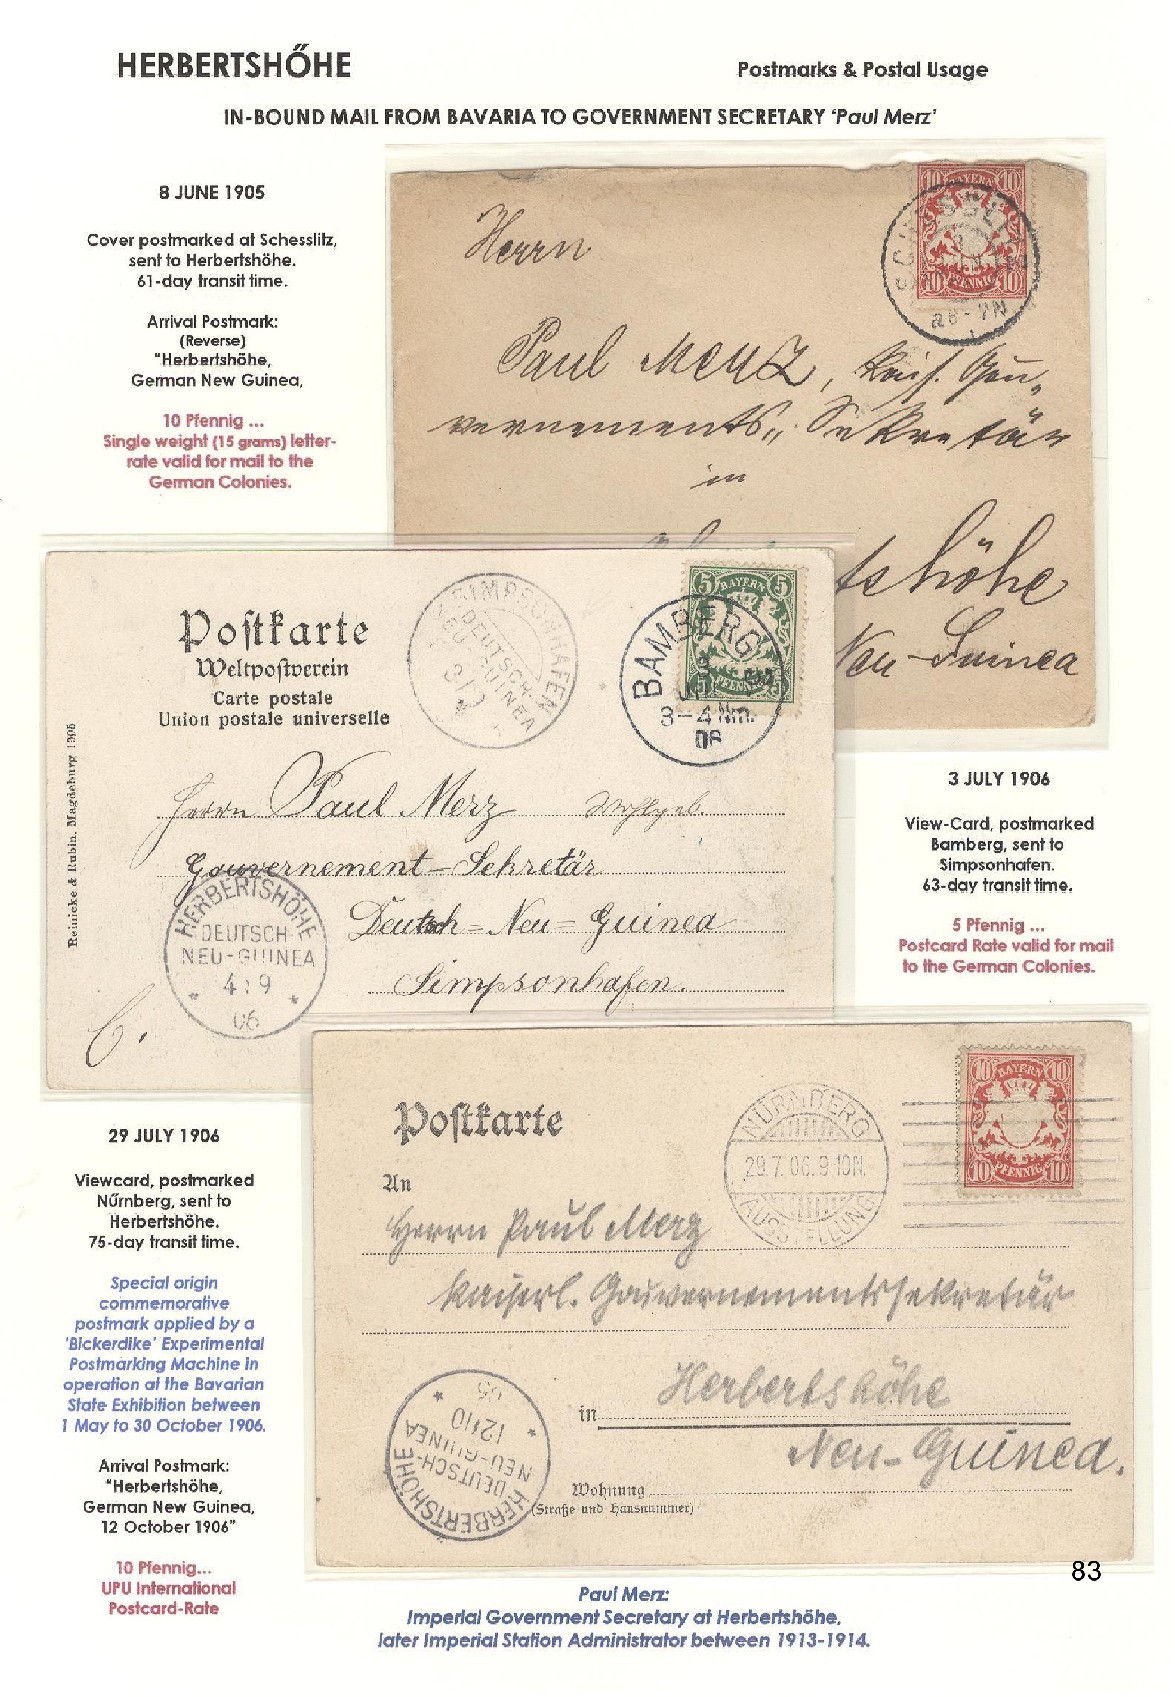 HERBERTSHŐHE
Postmarks & Postal Usage
IN-BOUND MAIL FROM BAVARIA TO GOVERNMENT SECRETARY ‘Paul Merz’
8 JUNE 1905
Cover postmarked at Schesslitz,
sent to Herbertshöhe.
61-day transit time.
Arrival Postmark:
(Reverse)
"Herbertshöhe,
German New Guinea,
10 Pfennig ...
Single weight (15 grams) letter-
rate valid for mail to the
German Colonies.
10 BAYERN 10
10 PFENNIG 10
SCHESSLITZ
Herrn
Paul Merz, Kais. Gou-
vernements-Sekretär
in
tshöhe
Neu-Guinea
Postkarte
Weltpostverein
Carte postale
Union postale universelle
Reinicke & Rubin. Magdeburg 1905
SIMPSONHAFEN
DEUTSCH-
NEU-GUINEA
5 BAYERN 5
5 PFENNIG 5
BAMBERG
3
3-4 Nm.
06
Herrn Paul Merz Wohlgeb.
Gouvernement-Sekretär
Deutsch=Neu=Guinea
Simpsonhafen.
HERBERTSHÖHE
DEUTSCH-
NEU-GUINEA
4:9
06
3 JULY 1906
View-Card, postmarked
Bamberg, sent to
Simpsonhafen.
63-day transit time.
5 Pfennig ...
Postcard Rate valid for mail
to the German Colonies.
29 JULY 1906
Viewcard, postmarked
Nűrnberg, sent to
Herbertshöhe.
75-day transit time.
Special origin
commemorative
postmark applied by a
‘Bickerdike’ Experimental
Postmarking Machine in
operation at the Bavarian
State Exhibition between
1 May to 30 October 1906.
Arrival Postmark:
"Herbertshöhe,
German New Guinea,
12 October 1906"
10 Pfennig...
UPU International
Postcard-Rate
Postkarte
NÜRNBERG
29.7.06.9-10N.
AUSSTELLUNG
10 BAYERN 10
10 PFENNIG 10
An
Herrn Paul Merz
Kaiserl. Gouvernementssekretär
in Herbertshöhe
Neu-Guinea.
Wohnung
(Straße und Hausnummer)
HERBERTSHÖHE
DEUTSCH-
NEU-GUINEA
12:10
06
83
Paul Merz:
Imperial Government Secretary at Herbertshöhe,
later Imperial Station Administrator between 1913-1914.